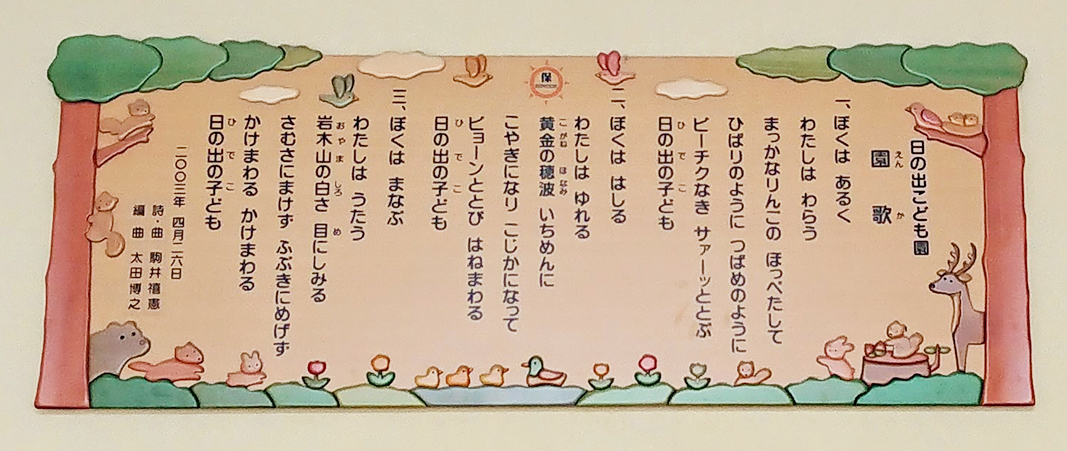 日の出こども園
園歌
えん か
一、ぼくは あるく
わたしは わらう
まっかなりんごの ほっぺたして
ひばりのように つばめのように
ピーチクなき サァーッととぶ
日の出の子ども
ひ で こ
二、ぼくは はしる
わたしは ゆれる
黄金の穂波 いちめんに
こがね ほなみ
こやぎになり こじかになって
ピョーンととび はねまわる
日の出の子ども
ひ で こ
三、ぼくは まなぶ
わたしは うたう
岩木山の白さ 目にしみる
おやま しろ め
さむさにまけず ふぶきにめげず
かけまわる かけまわる
日の出の子ども
ひ で こ
二〇〇三年 四月二六日
詩・曲 駒井禧憲
編 曲 太田博之
保